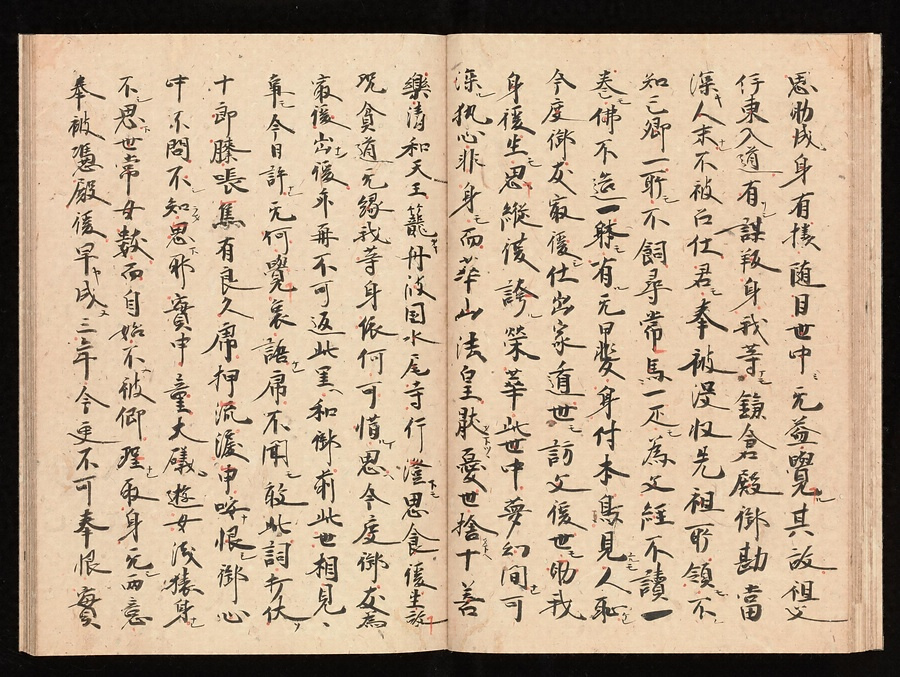 思助成身有様随目世中无益覺其故祖父
伊東入道有謀叛身我等鎌倉殿御勘當
深人末不被召仕君奉被没収先祖所領不
知已郷一所不飼尋常馬一疋為父経不讀一
巻佛不造一躰有无甲斐身付本鳥見人恥
今度御友最後仕出家遁世訪父後世助我
身後生思縦後誇榮華此世中夢幻間可
深執心非身而花山法皇猒憂世捨十善
樂清和天王籠丹波国水尾寺行澄思食後生
况貪道无縁我等身依何可惜思今度御友為
最後出後年再不可返此里和御前此世相見
事今日許无何覺哀語虎不聞敢此詞打伏
十郎膝 有良久虎押流涙申 恨御心
中不問不知思 實中童大礒遊女浅猿身
不思世常女数而自始不被仰 取身无両意
奉被憑殿後早成三年今更不可奉恨實